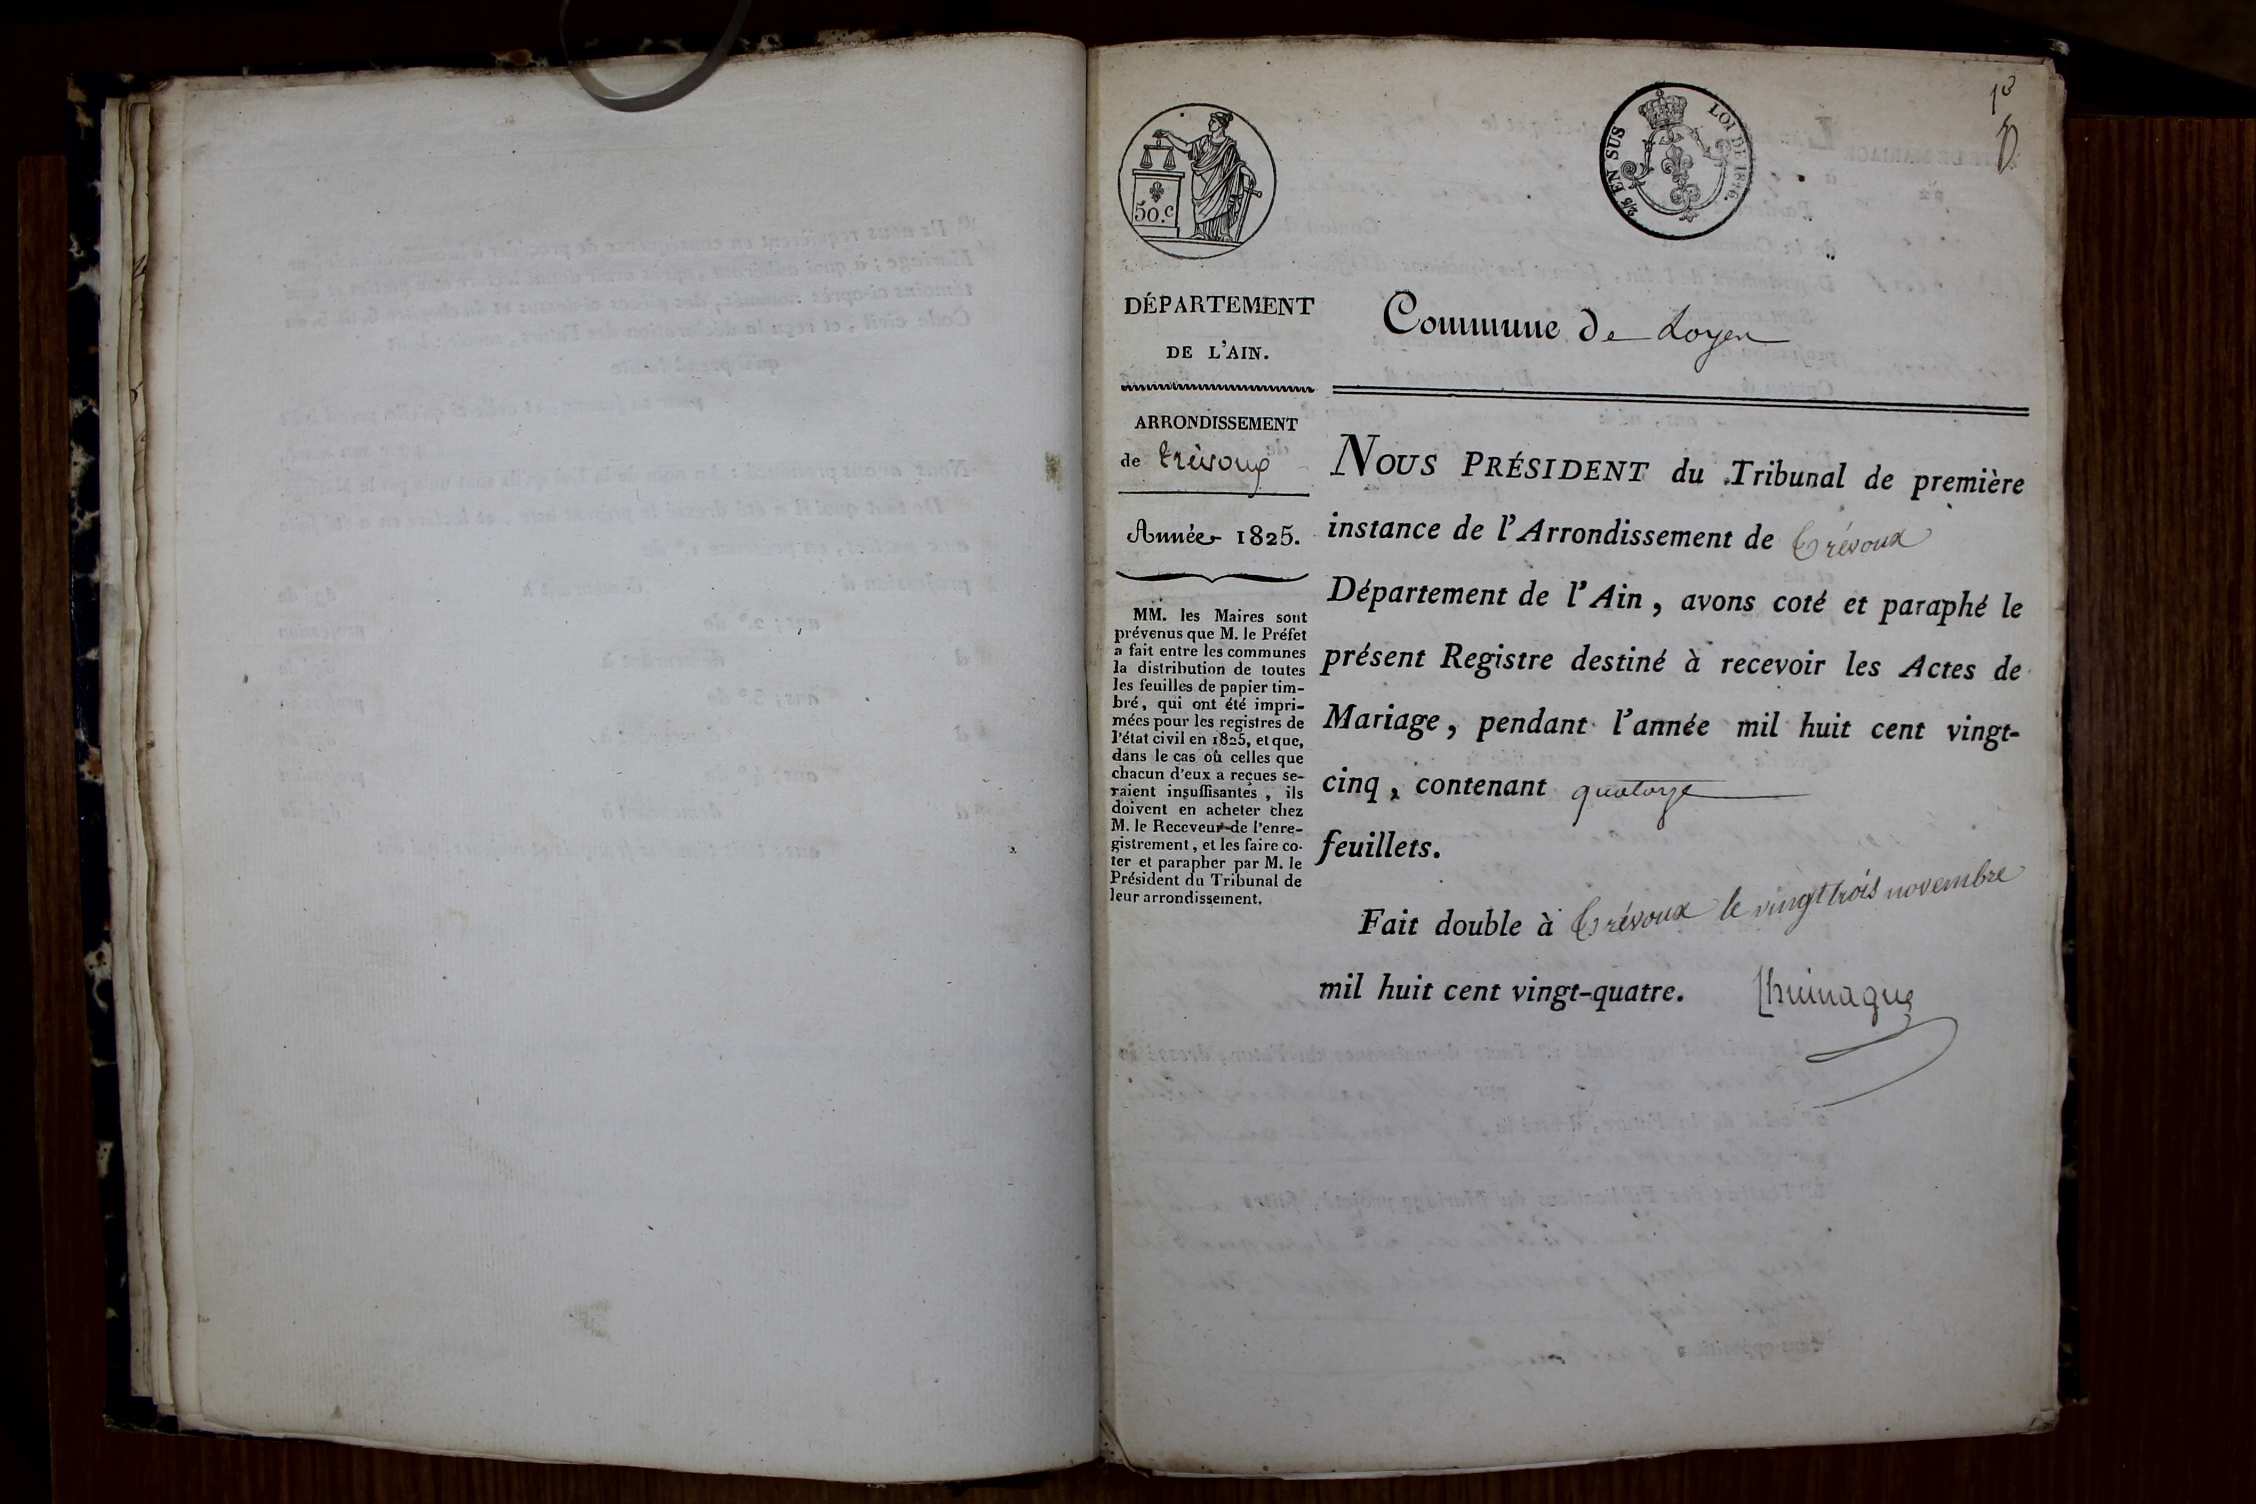 50.c
2/5 EN SUS
LOI DE 1816.
DÉPARTEMENT
DE L'AIN.
ARRONDISSEMENT
de trévoux
Année 1825.
MM. les Maires sont
prévenus que M. le Préfet
a fait entre les communes
la distribution de toutes
les feuilles de papier tim-
bré, qui ont été impri-
mées pour les registres de
l'état civil en 1825, et que,
dans le cas où celles que
chacun d'eux a reçues se-
raient insuffisantes, ils
doivent en acheter chez
M. le Receveur de l'enre-
gistrement, et les faire co-
ter et parapher par M. le
Président du Tribunal de
leur arrondissement.
Commune de Loyer
NOUS PRÉSIDENT du Tribunal de première
instance de l'Arrondissement de Trévoux
Département de l'Ain, avons coté et paraphé le
présent Registre destiné à recevoir les Actes de
Mariage, pendant l'année mil huit cent vingt-
cinq, contenant quatorze
feuillets.
Fait double à Trévoux le vingt trois novembre
mil huit cent vingt-quatre.